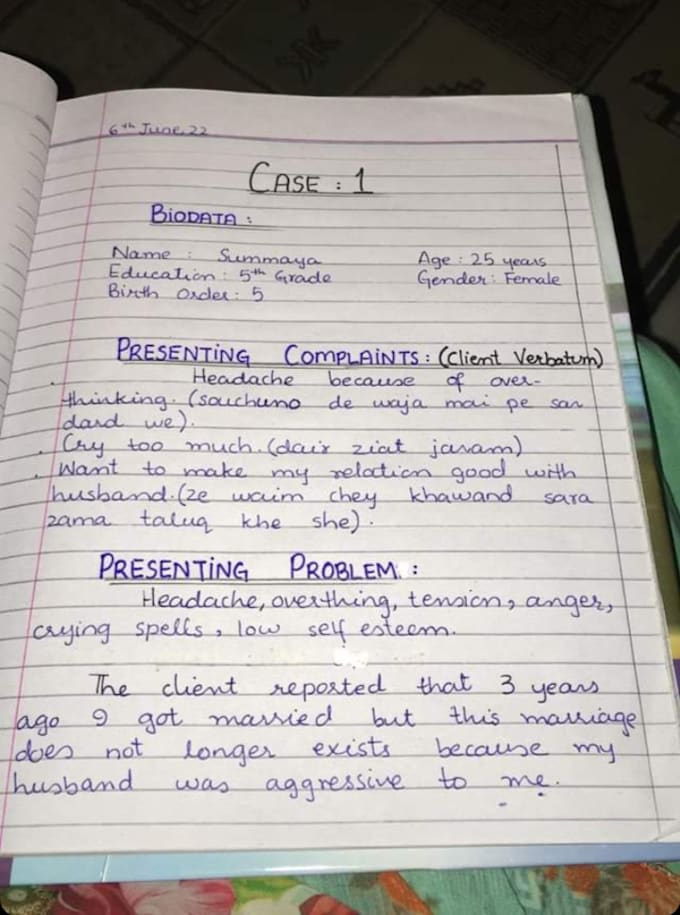 6th June, 22
CASE : 1
BIODATA :
Name : Summaya Age : 25 years
Education : 5th Grade Gender : Female
Birth Order : 5
PRESENTING COMPLAINTS : (Client Verbatum)
Headache because of over-
thinking. (souchuno de waja mai pe sar
dard we).
. Cry too much. (dair ziat jaram)
. Want to make my relation good with
husband. (ze waim chey khawand sara
zama taluq khe she).
PRESENTING PROBLEM :
Headache, overthing, tension, anger,
crying spells, low self esteem.
The client reported that 3 years
ago I got married but this marriage
does not longer exists because my
husband was aggressive to me.